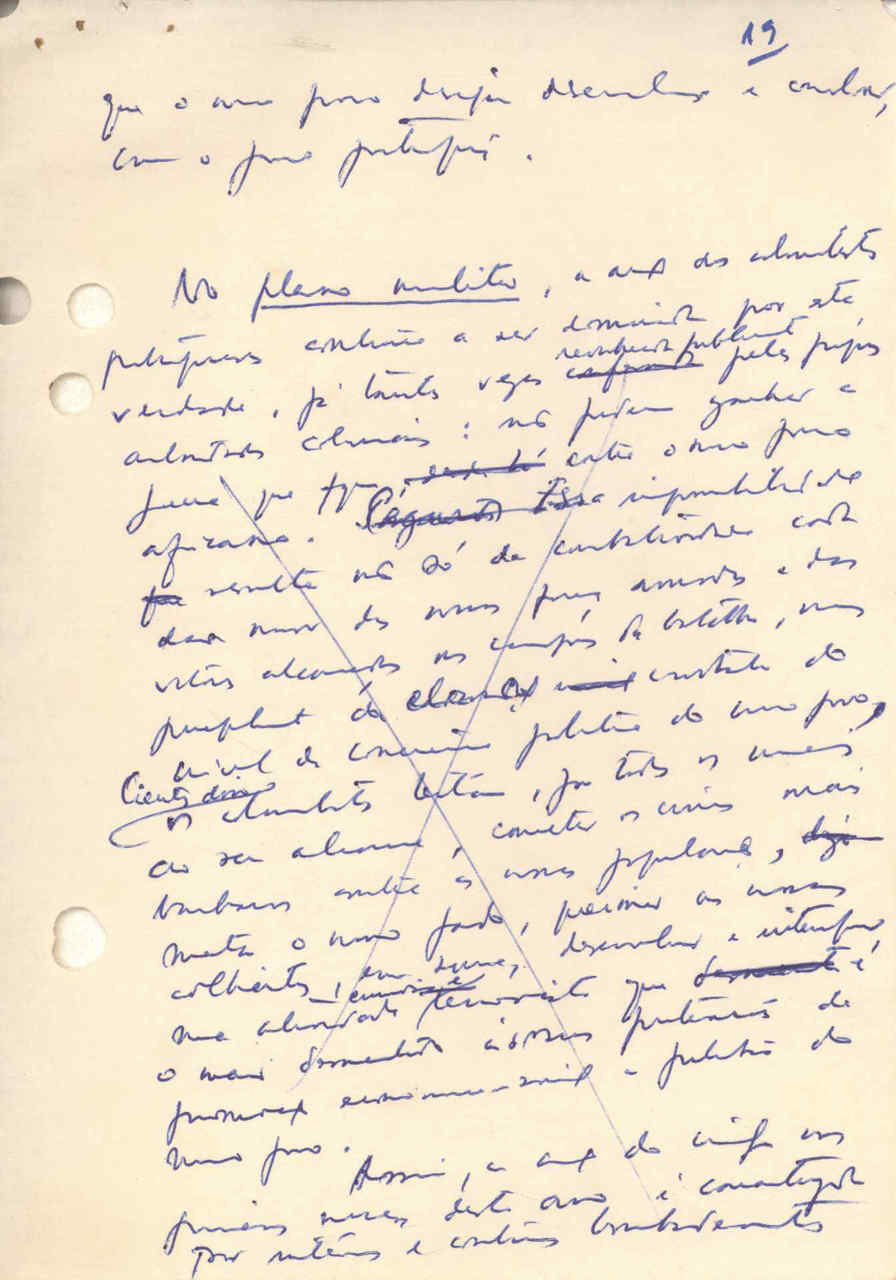 19
que o nosso povo deseja desenvolver e consolidar,
com o povo português.
No plano militar, a acção dos colonialistas
portugueses continua a ser dominada por esta
verdade, já tantas vezes reconhecida publicamente pelas próprias
autoridades coloniais: não podem ganhar a
guerra que fazem contra o nosso povo
africano. Essa impossibilidade
resulta não só da combatividade cada
dia maior das nossas forças armadas e das
vitórias alcançadas nos campos de batalha, mas
principalmente da elevação constante do
nível de consciência política do nosso povo,
Cientes disso
os colonialistas tentam, por todos os meios
ao seu alcance, cometer os crimes mais
bárbaros contra as nossas populações,
matar o nosso gado, queimar as nossas
colheitas, em suma, desenvolver e intensificar
uma actividade terrorista que é
o maior desmentido às suas pretensões de
promoção economico-social e política do
nosso povo.
Assim, a acção do inimigo nos
primeiros meses deste ano é caracterizada
por intensos e contínuos bombardeamentos